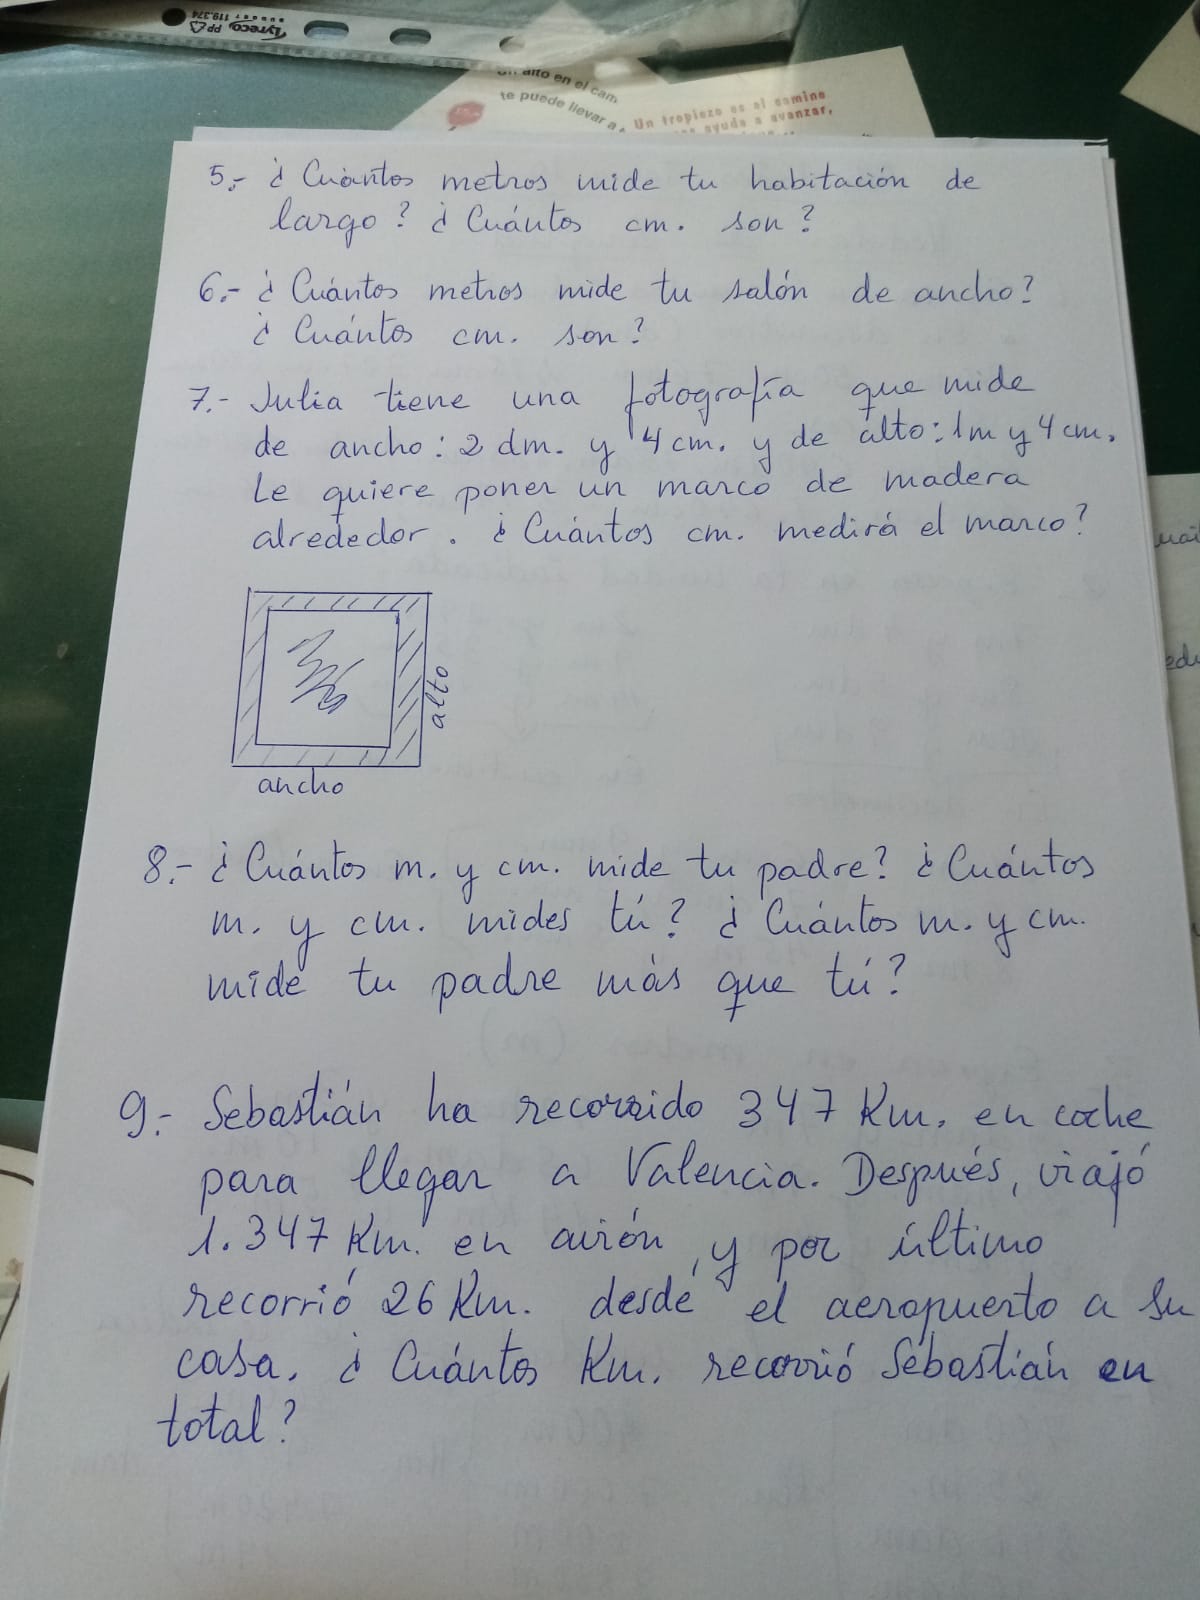 Lyreco
BUDGET 119.374
PP
alto en el cam
te puede llevar a
Un tropiezo es el camino
ayuda a avanzar,
5.- ¿Cuántos metros mide tu habitación de
largo? ¿Cuántos cm. son?
6.- ¿Cuántos metros mide tu salón de ancho?
¿Cuántos cm. son?
7.- Julia tiene una fotografía que mide
de ancho: 2 dm. y 4 cm. y de alto: 1m y 4 cm.
Le quiere poner un marco de madera
alrededor. ¿Cuántos cm. medirá el marco?
alto
ancho
8.- ¿Cuántos m. y cm. mide tu padre? ¿Cuántos
m. y cm. mides tú? ¿Cuántos m. y cm.
mide tu padre más que tú?
9.- Sebastián ha recorrido 347 Km. en coche
para llegar a Valencia. Después, viajó
1.347 Km. en avión, y por último
recorrió 26 Km. desde el aeropuerto a su
casa. ¿Cuántos Km. recorrió Sebastián en
total?